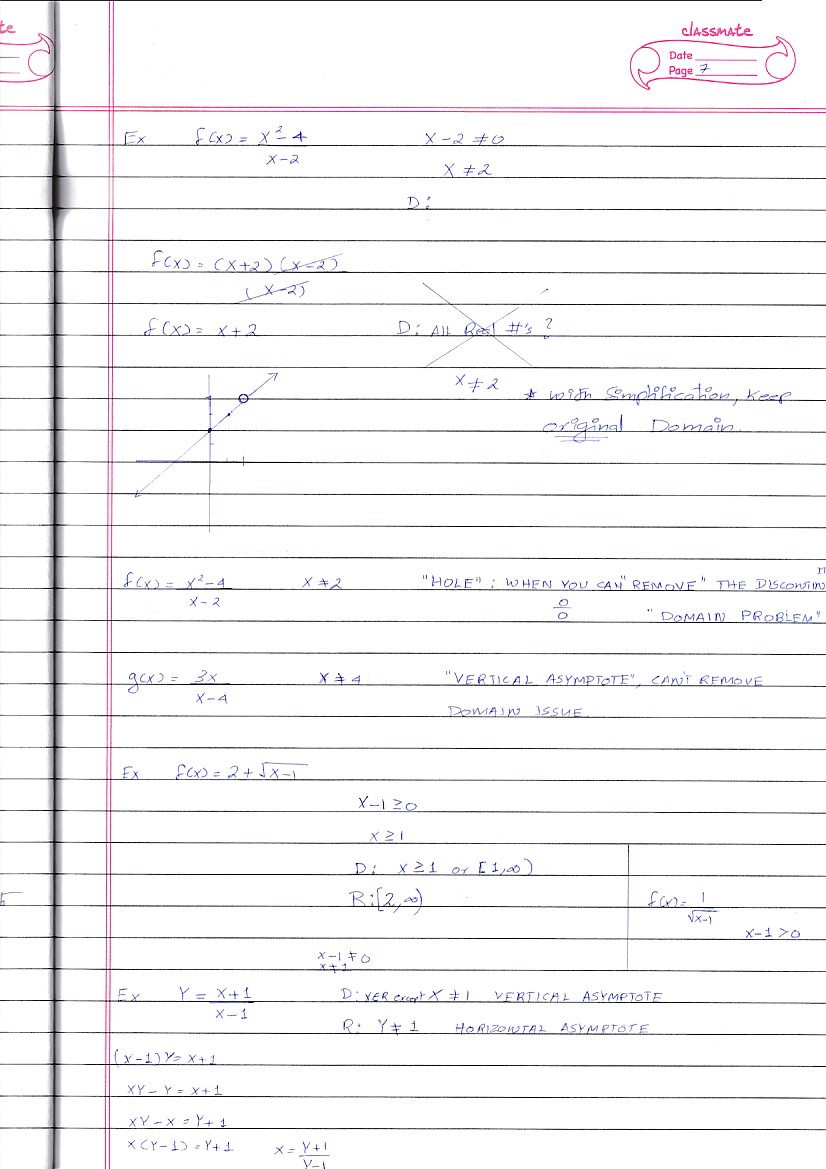 te
classmate
Date
Page 7
Ex f(x) = x²-4 / x-2 x-2 ≠ 0
x ≠ 2
D:
f(x) = (x+2)(x-2) / (x-2)
f(x) = x+2 D: All Real #'s ?
x ≠ 2 * with Simplification, keep
original Domain.
f(x) = x²-4 / x-2 x ≠ 2 "HOLE" : WHEN YOU CAN "REMOVE" THE DISCONTIN
0/0 "DOMAIN PROBLEM"
g(x) = 3x / x-4 x ≠ 4 "VERTICAL ASYMPTOTE", CAN'T REMOVE
DOMAIN ISSUE
Ex f(x) = 2 + √x-1
x-1 ≥ 0
x ≥ 1
D: x ≥ 1 or [1,∞)
R:[2,∞) f(x) = 1 / √x-1
x-1 > 0
x-1 ≠ 0
x ≠ 1
Ex Y = x+1 / x-1 D: XER except X ≠ 1 VERTICAL ASYMPTOTE
R: Y ≠ 1 HORIZONTAL ASYMPTOTE
(x-1)Y = x+1
XY - Y = x+1
XY - X = Y+1
X(Y-1) = Y+1 X = Y+1 / Y-1